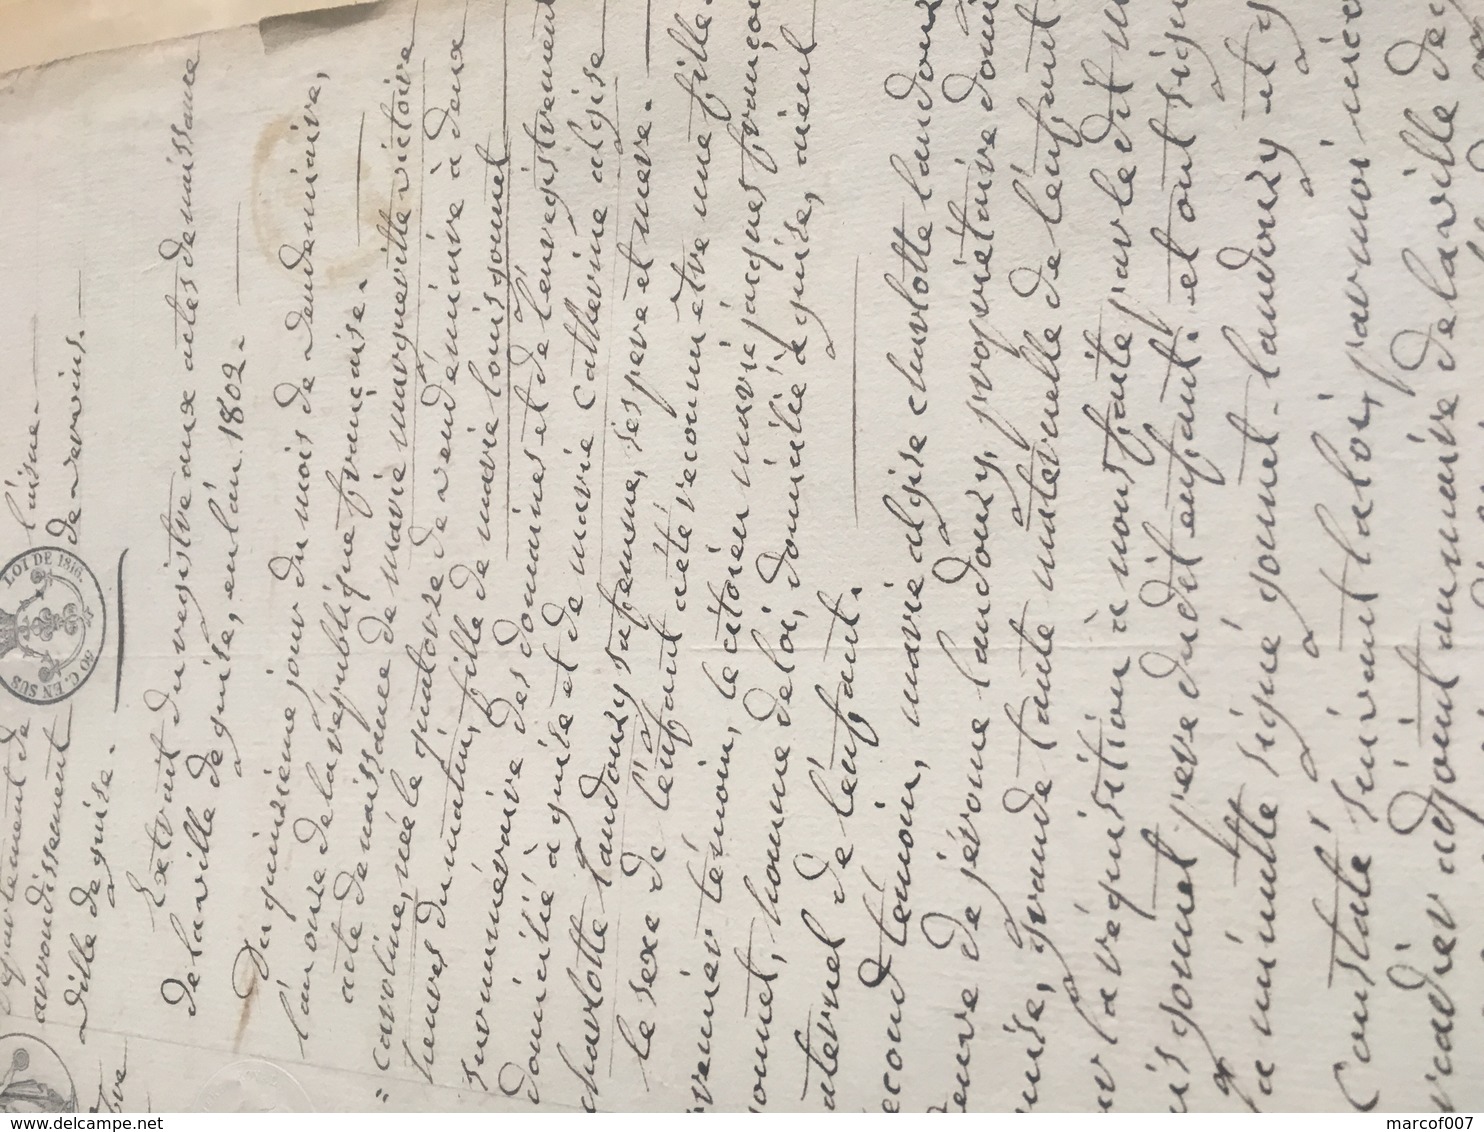 département de l'aisne.
arrondissement de vervins.
ville de guise.
LOI DE 1816.
50 C. EN SUS
Extrait du registre aux actes de naissance
de la ville de guise, en l'an 1802.
Du quinzieme jour du mois de vendemiaire,
l'an onze de la république française.
acte de naissance de marie marguerite victoire
= caroline, née le quatorze de vendémiaire à deux
heures du matin, fille de marie louis gomet
surnuméraire des domaines et de l'enregistrement
domicilié à guise et de marie catherine algise
charlotte landouzy sa femme, ses pere et mere.
le sexe de l'enfant a été reconnu etre une fille.
premier témoin, le citoien marie jacques françois
gomet, homme de loi, domicilié à guise, aieul
paternel de l'enfant.
second témoin, marie algise charlotte landouzy
veuve de jérome landouzy, propriétaire domi
guise, grande tante maternelle de l'enfant.
sur la réquisition à nous faite par le dit m
louis gomet pere du dit enfant. et ont signé
la minutte signé gomet. landouzy et g
Constaté suivant la loi, par moi nico
adjoint au maire de la ville de g
marcof007